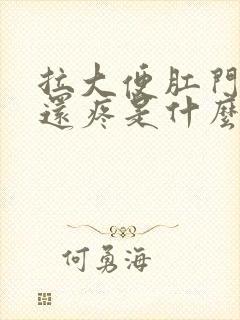 拉大便肛門
還疼是什麼
何勇海